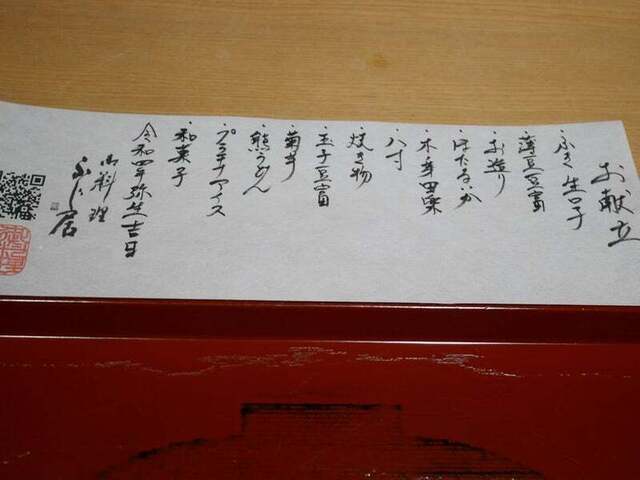 お献立
・ふき 生口子
豆富
・お造り
・ほたるいか
・木の芽田楽
・八寸
・焼き物
・玉子豆富
・菊芋
・熊うどん
・プラチナアイス
・和菓子
令和四年弥生吉日
御料理
ふじ居